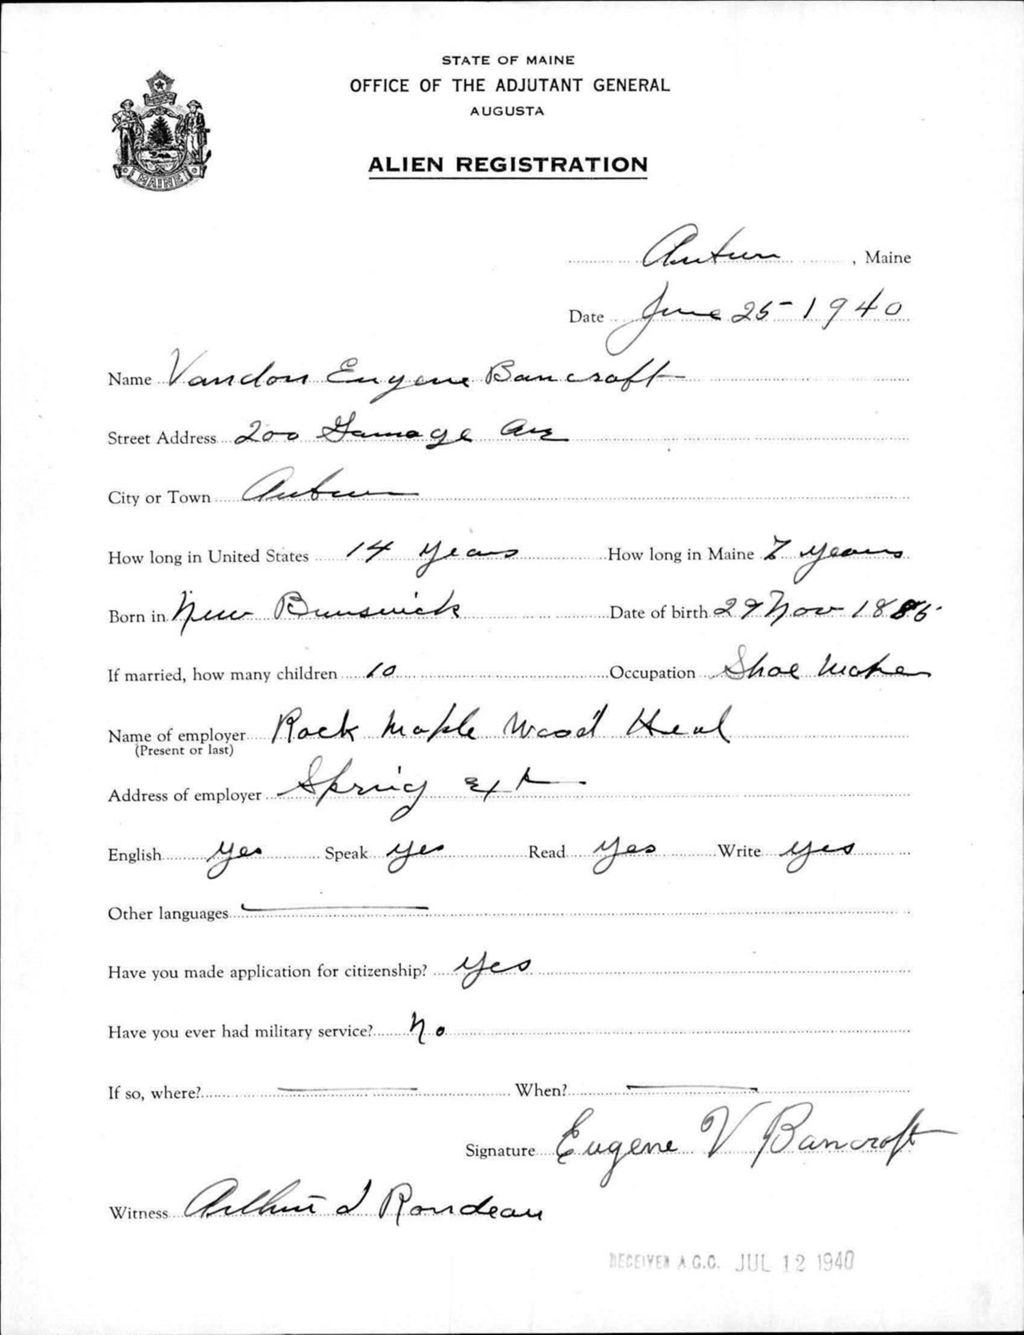 STATE OF MAINE
OFFICE OF THE ADJUTANT GENERAL
AUGUSTA
MAINE
ALIEN REGISTRATION
Auburn, Maine
Date June 25-1940
Name Vandon Eugene Bancroft
Street Address 200 Gamage Ave
City or Town Auburn
How long in United States 14 years How long in Maine 7 years
Born in New Brunswick Date of birth 29 Nov 188
If married, how many children 10 Occupation Shoe Maker
Name of employer Rock Maple Wood Heal
(Present or last)
Address of employer Spring Ext
English yes Speak yes Read yes Write yes
Other languages
Have you made application for citizenship? yes
Have you ever had military service? No
If so, where? When?
Signature Eugene V Bancroft
Witness Rondeau
RECEIVED A.G.O. JUL 12 1940